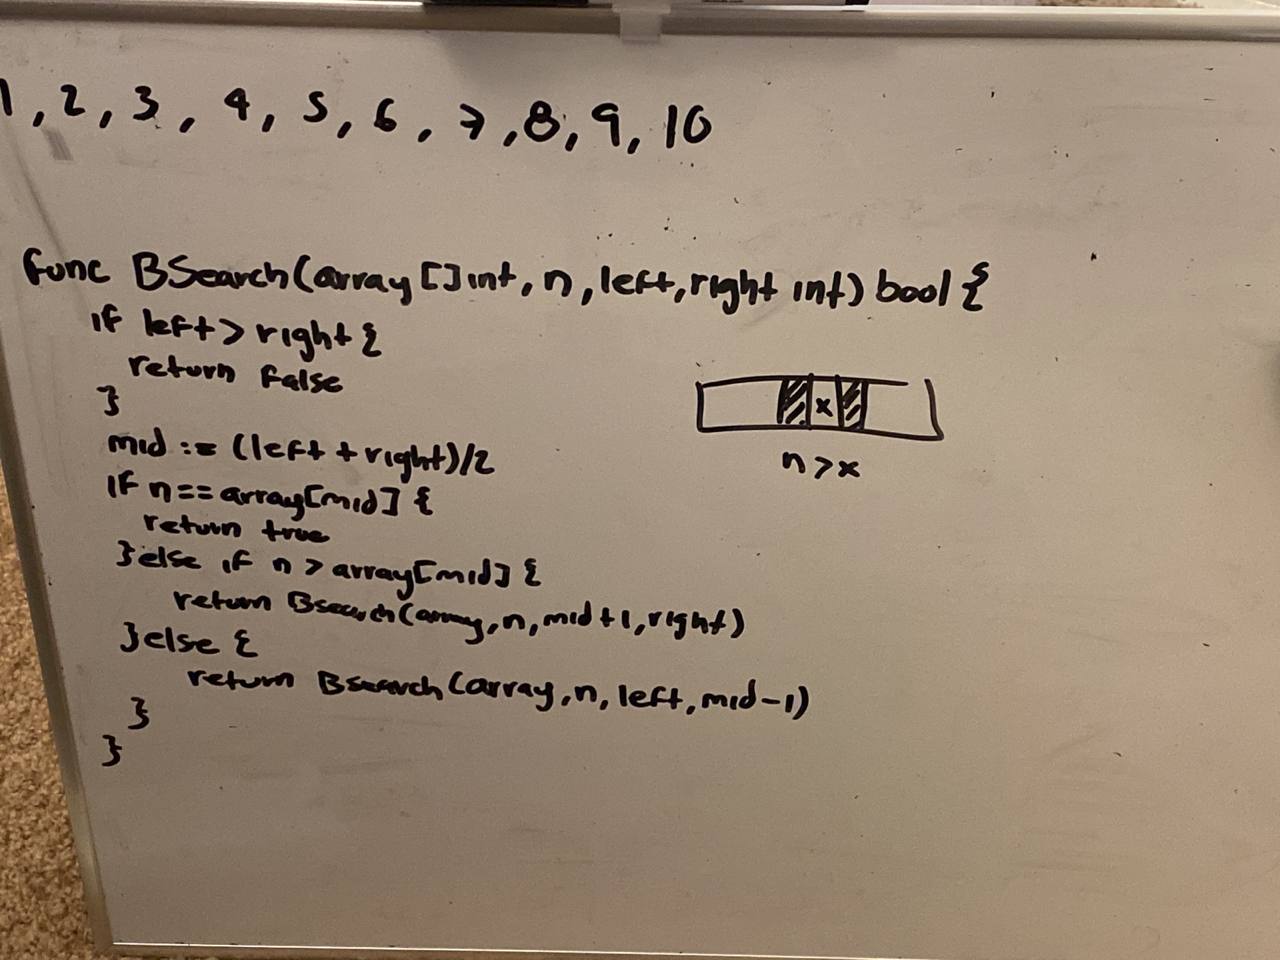 1, 2, 3, 4, 5, 6, 7, 8, 9, 10
func BSearch(array []int, n, left, right int) bool {
if left > right {
return false
}
mid := (left + right)/2
if n == array[mid] {
return true
} else if n > array[mid] {
return Bsearch(array, n, mid+1, right)
} else {
return Bsearch(array, n, left, mid-1)
}
}
x
n > x